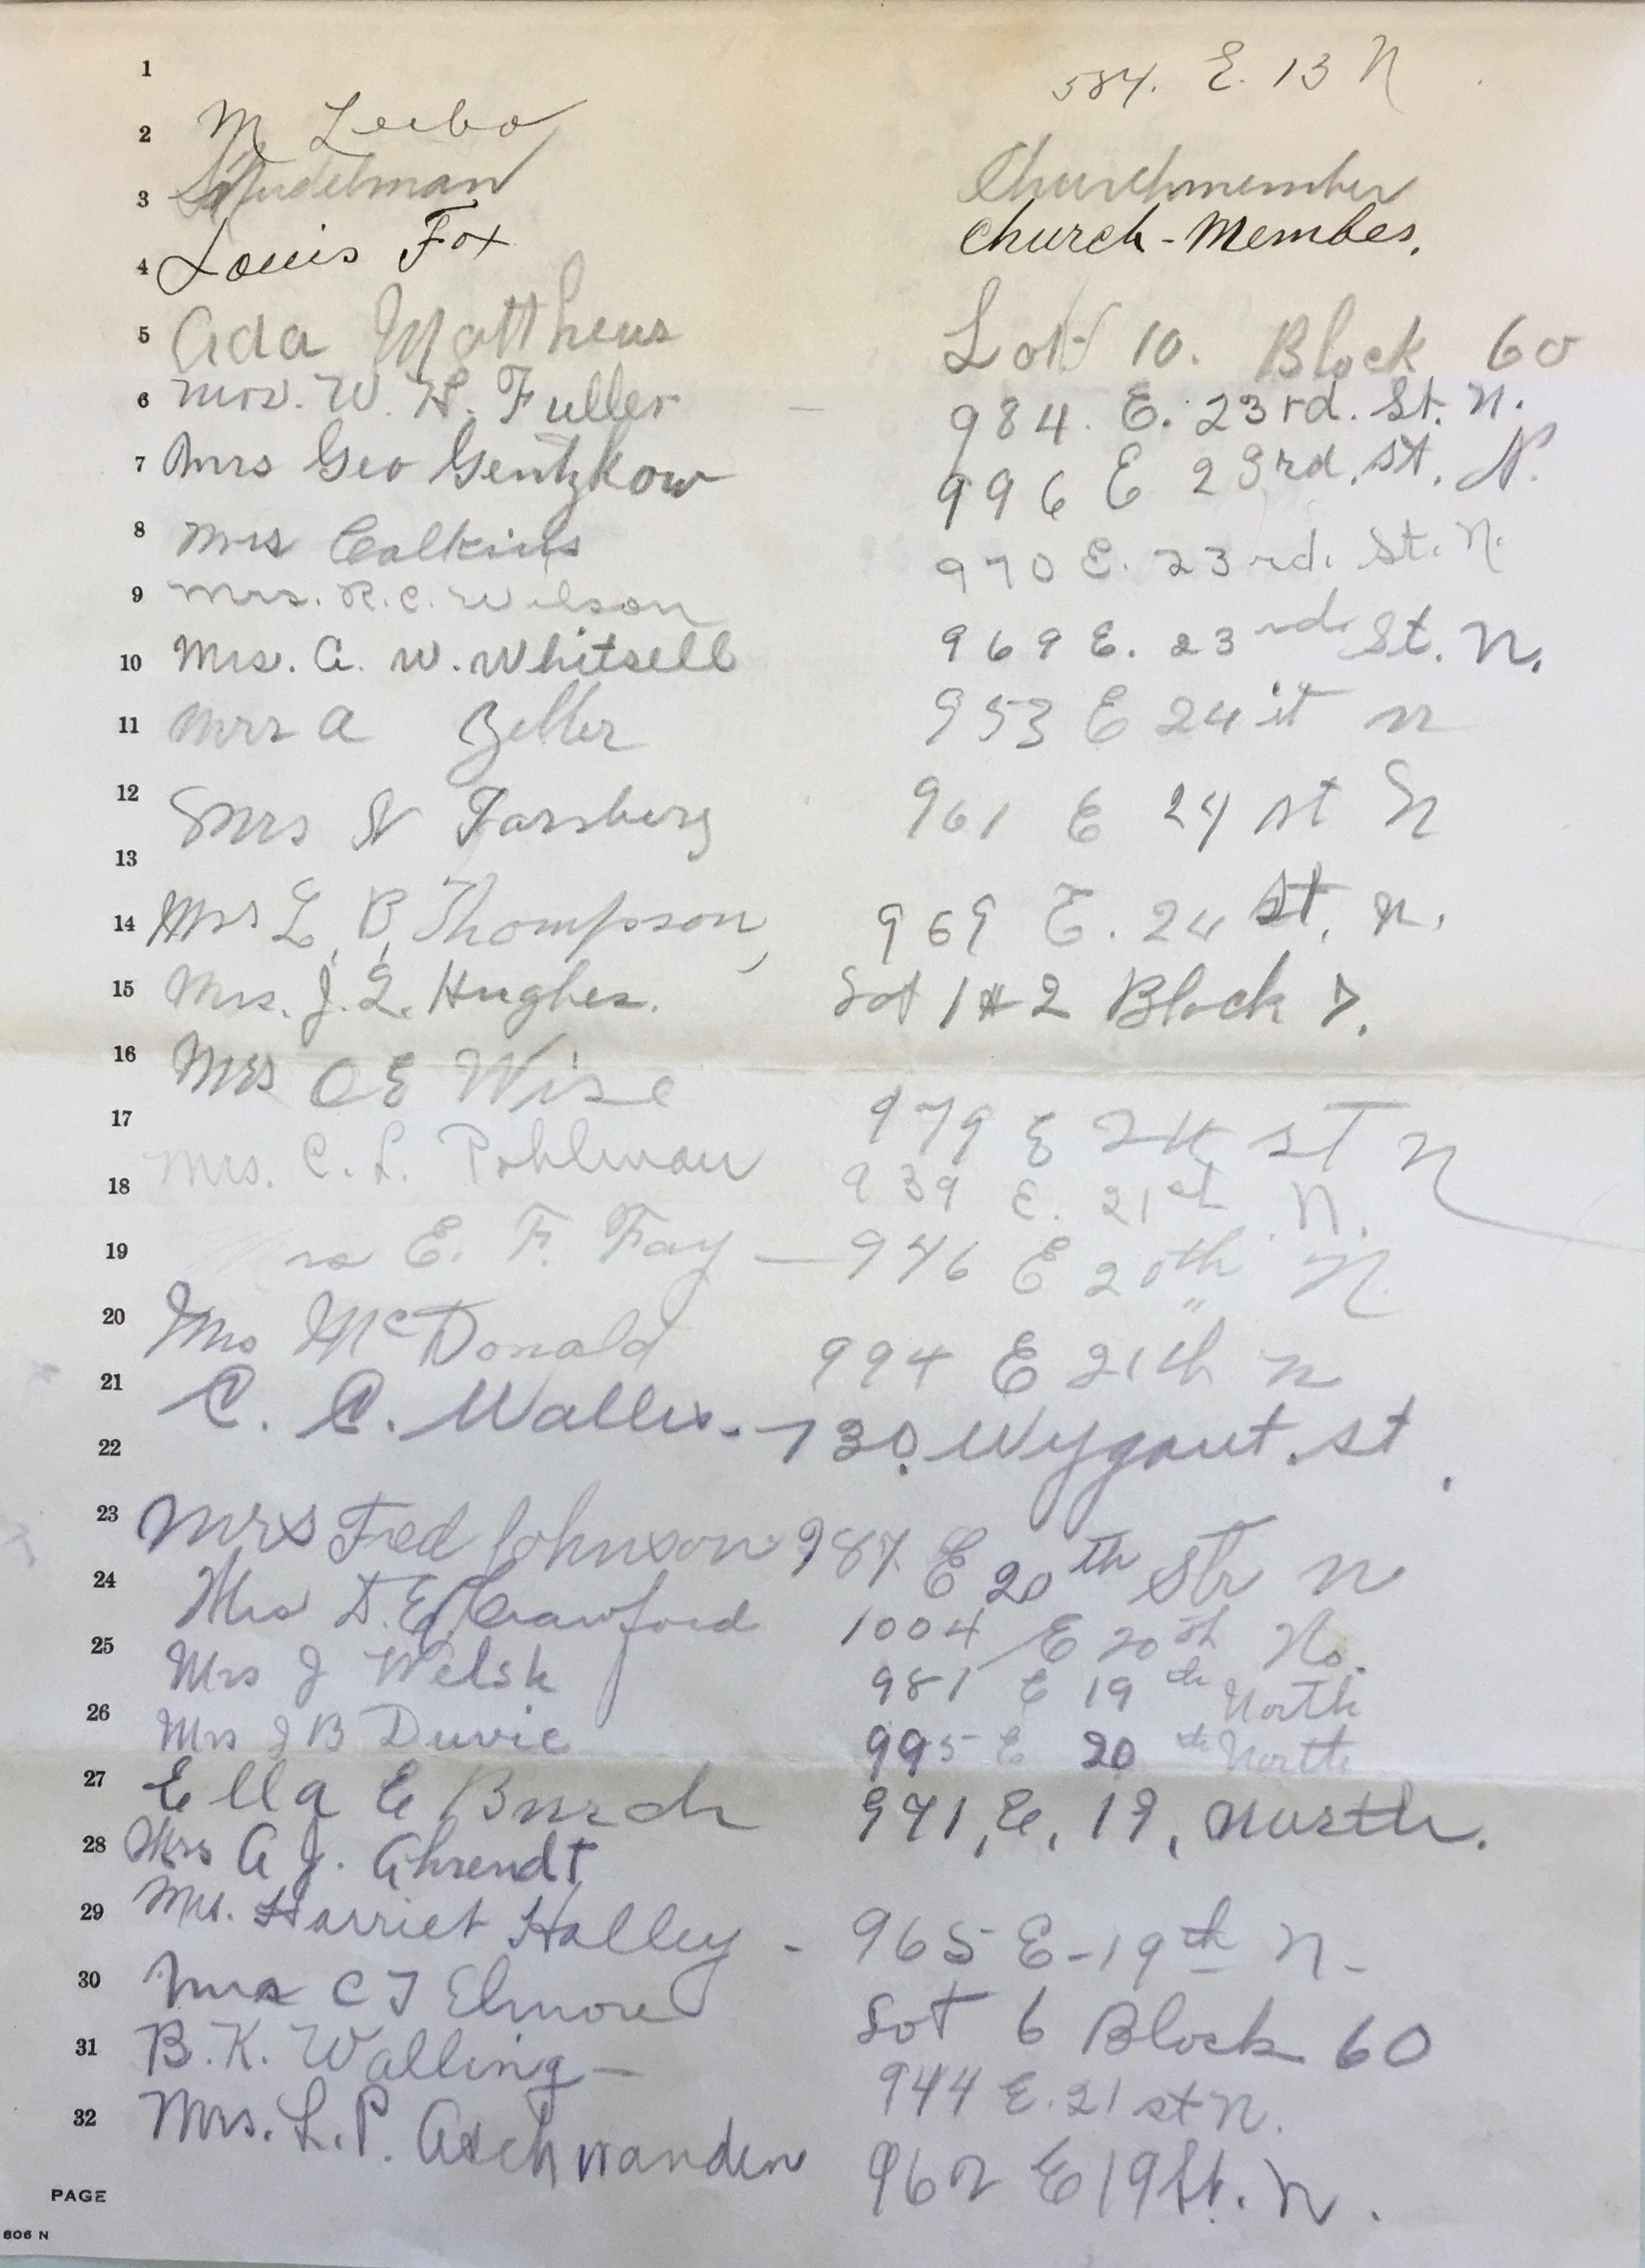 1 584. E. 13 N
2 M Leibo
3 Churchmember
4 Louis Fox Church-Member.
5 Ada Matthews Lot 10. Block 60
6 Mrs. W. H. Fuller - 984. E. 23rd. St. N.
7 Mrs Geo Gentzkow 996 E 23rd. St. N.
8 Mrs Calkins 970 E. 23rd. St. N.
9 Mrs. R.C. Wilson
10 Mrs. A. W. Whitsell 969 E. 23rd St. N.
11 Mrs A Zeller 953 E 24 st n
12 Mrs N Farsberg 961 E 24 st N
13
14 Mrs L. B. Thompson, 969 E. 24 St. N.
15 Mrs. J. L. Hughes. Lot 1 & 2 Block 7.
16 Mrs O E Wise 979 E 24 st N
17 Mrs. C. L. Pohlman 939 E. 21st N.
18
19 rs E. F. Fay — 946 E 20th N.
20 Mrs McDonald 994 E 21th N
21 C. C. Waller. - 730. Wygant. st.
22
23 Mrs Fred Johnson 987 E 20th Str N
24 Mrs D. E. Crawford 1004 E 20th No.
25 Mrs J Welsh 981 E 19th North
26 Mrs J B Duvic 995 E 20th North
27 Ella E Burch 971, E, 19, North.
28 Mrs A J. Ahrendt
29 Mrs. Harriet Halley - 965 E-19th N-
30 Mrs C T Elmore Lot 6 Block 60
31 B. K. Walling - 944 E. 21 st N.
32 Mrs. L. P. Aschwanden 962 E 19 St. N.
PAGE
606 N